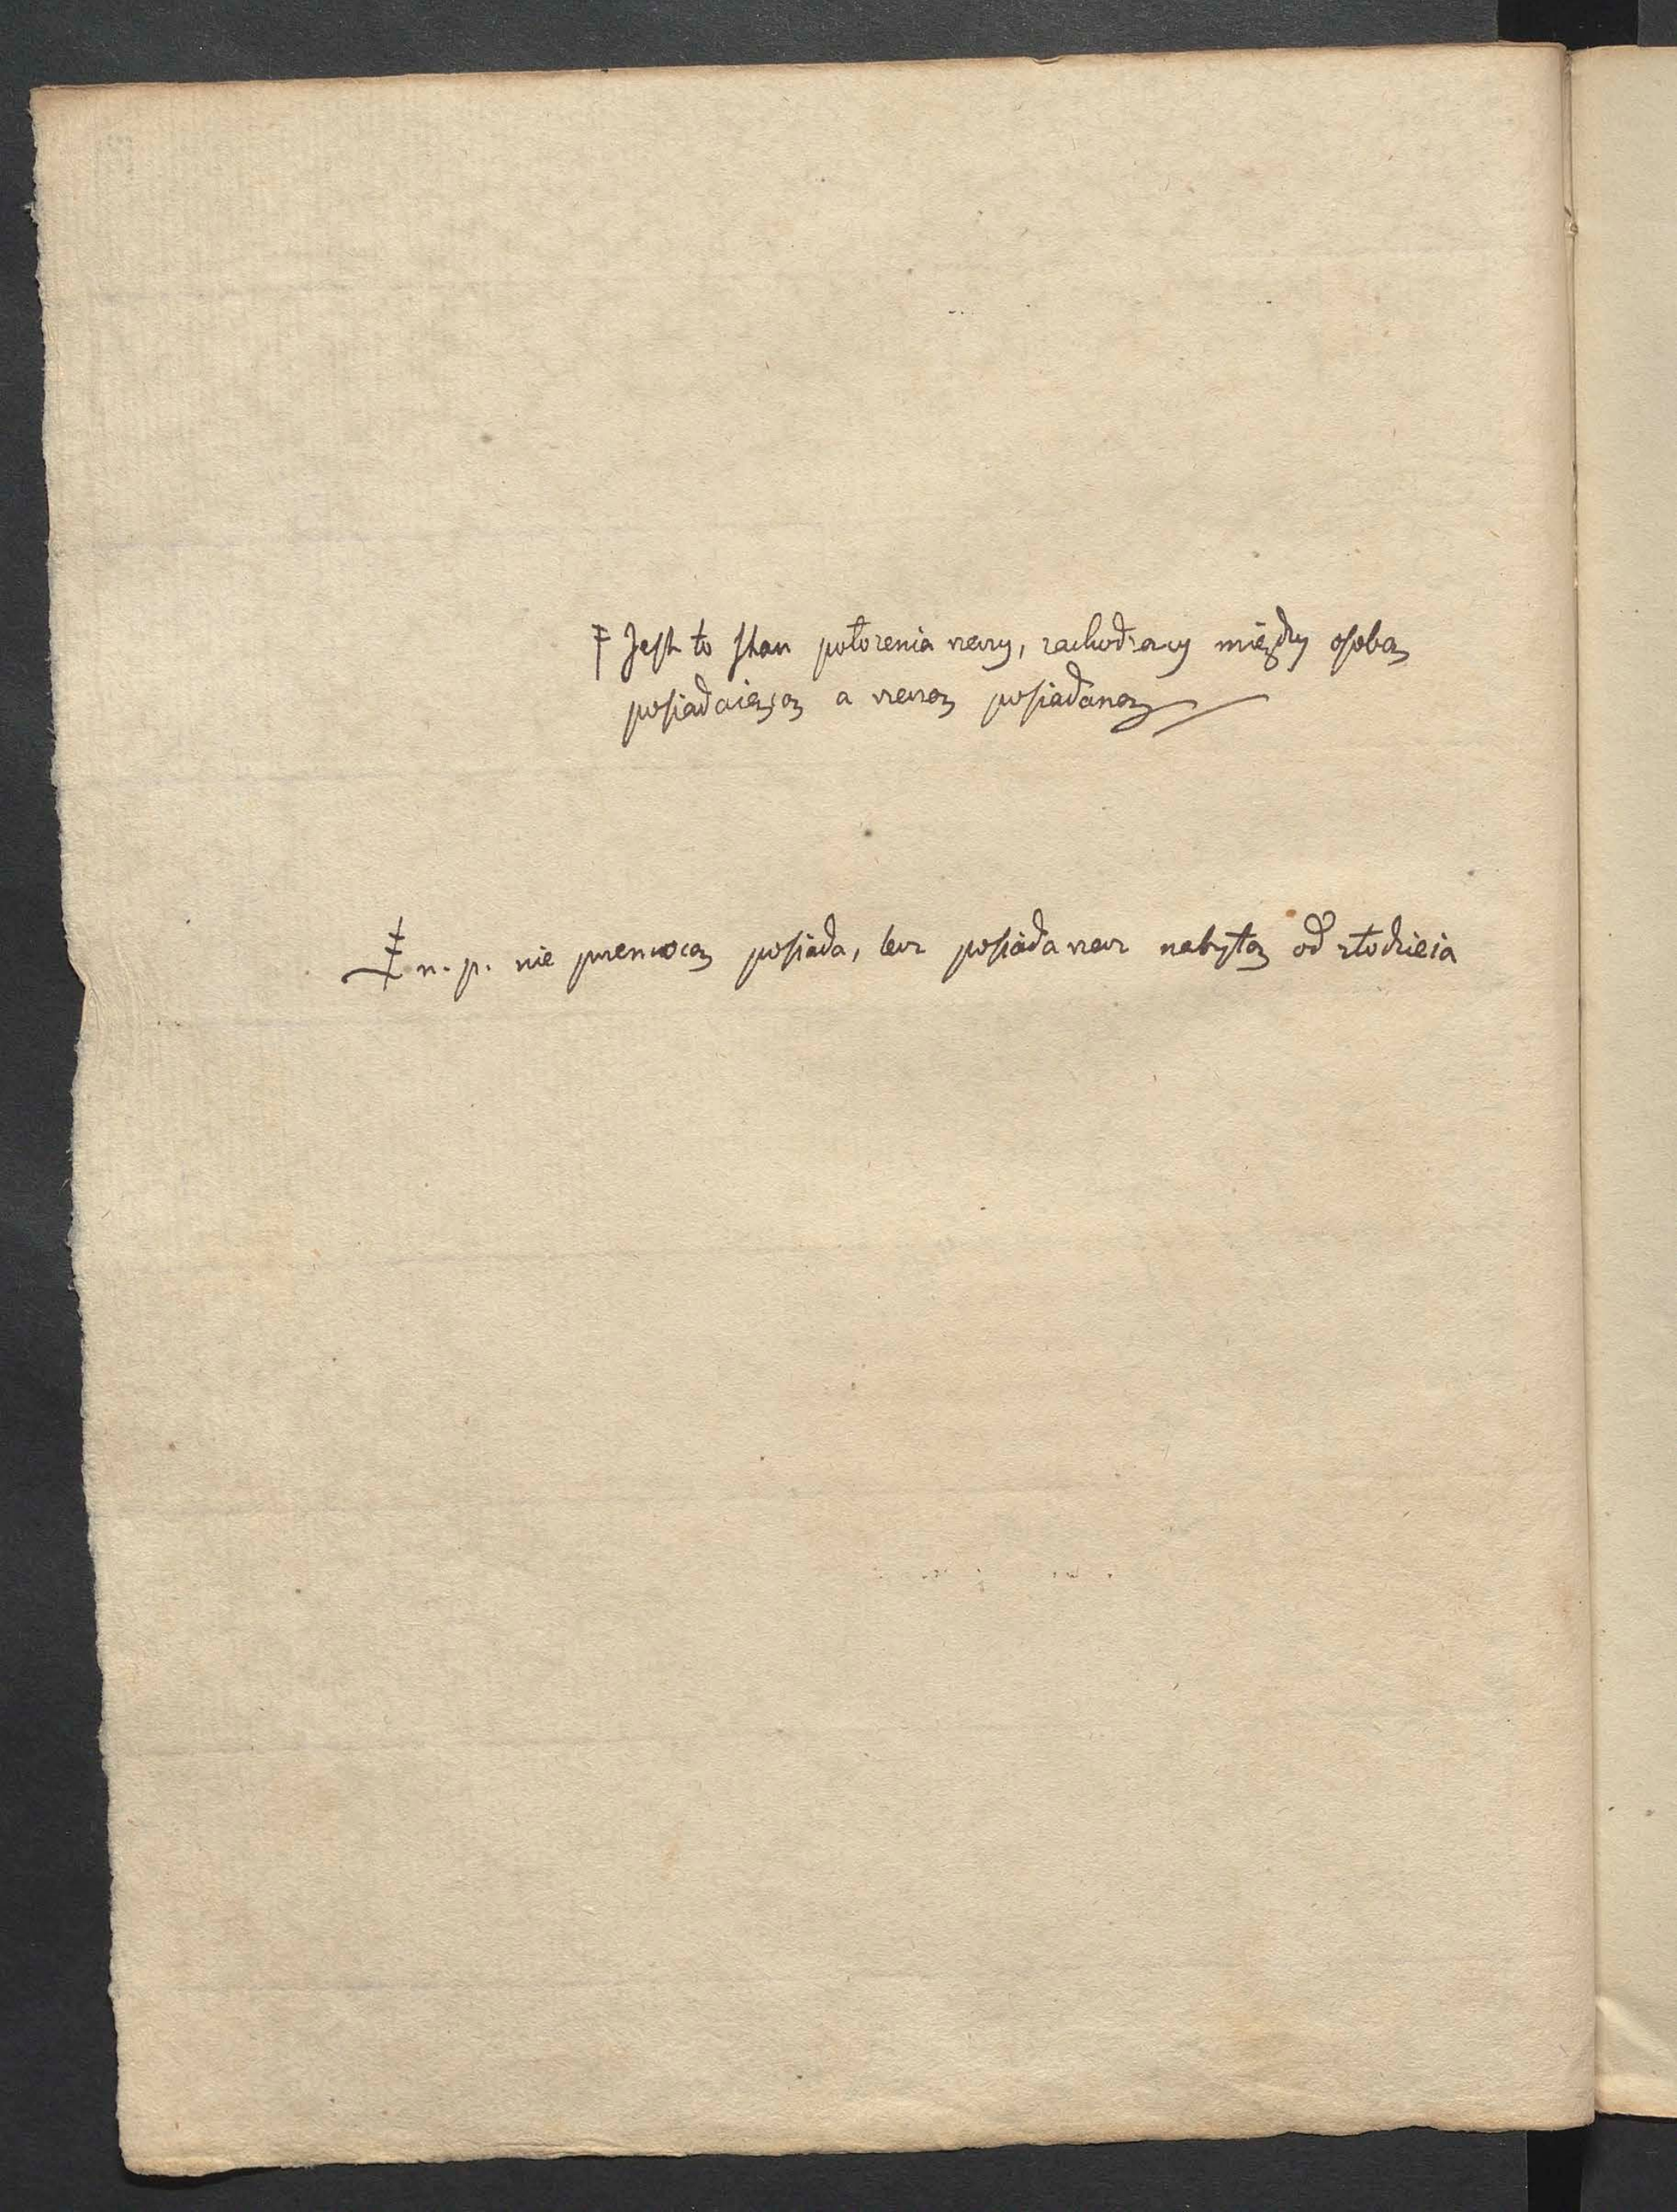 ‡ Jest to stan położenia rzeczy, zachodzący między osobą
posiadaiącą a rzeczą posiadaną
‡ n. p. nie przemocą posiada, lecz posiada rzecz nabytą od złodzieia